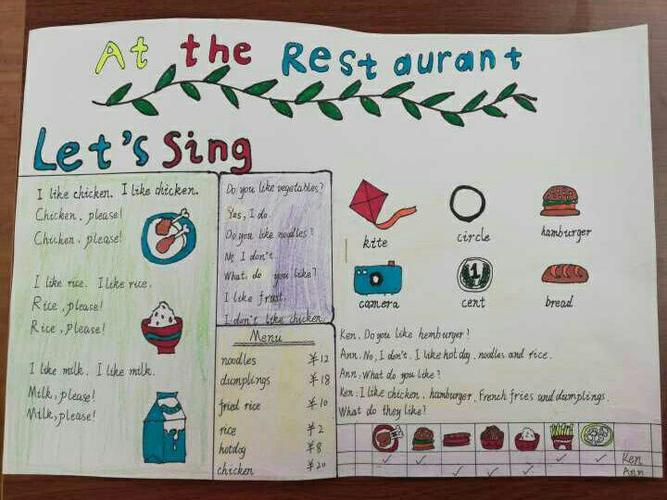 At the Restaurant
Let's Sing
I like chicken. I like chicken.
Chicken, please!
Chicken, please!
I like rice. I like rice.
Rice, please!
Rice, please!
I like milk. I like milk.
Milk, please!
Milk, please!
Do you like vegetables?
Yes, I do.
Do you like noodles?
No, I don't.
What do you like?
I like fruit.
I don't like chicken.
Menu
noodles ¥12
dumplings ¥18
fried rice ¥10
rice ¥2
hotdog ¥8
chicken ¥20
kite
circle
hamburger
camera
1
cent
bread
Ken. Do you like hemburger?
Ann. No, I don't. I like hot dog, noodles and rice.
Ann. What do you like?
Ken. I like chicken, hamburger, French fries and dumplings.
What do they like?
Ken
Ann